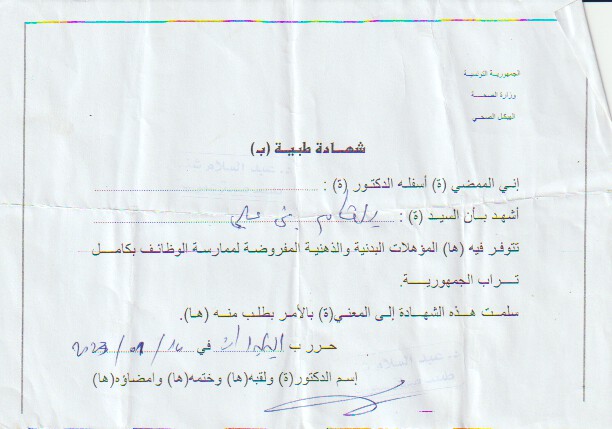 الجمهورية التونسية
وزارة الصحة
الهيكل الصحي
شهادة طبية (ب)
إني الممضي (ة) أسفله الدكتور (ة) :
أشهد بأن السيد (ة) : بلقاسم بن علي
تتوفر فيه (ها) المؤهلات البدنية والذهنية المفروضة لممارسة الوظائف بكامل
تراب الجمهورية.
سلمت هذه الشهادة إلى المعني(ة) بالأمر بطلب منه (ها).
حرر ب في
إسم الدكتور(ة) ولقبه(ها) وختمه(ها) وامضاؤه(ها)